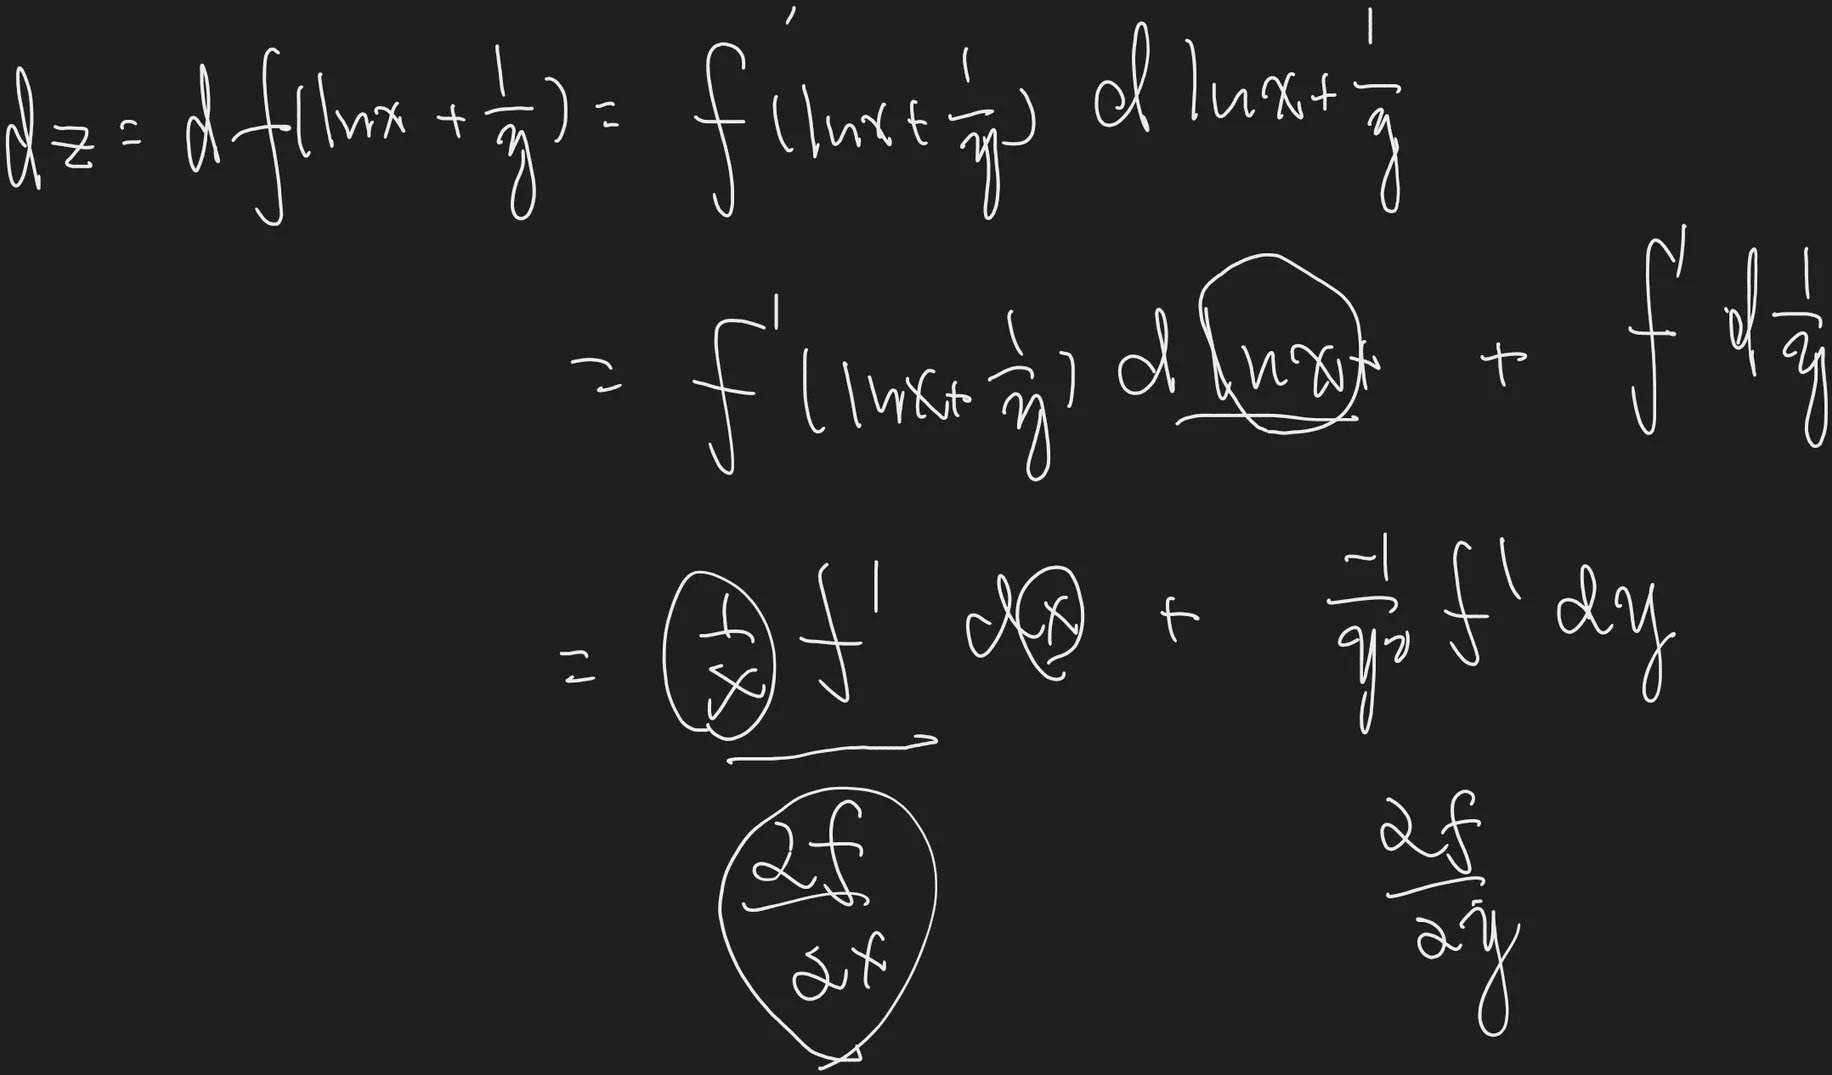 dz = d f(lnx + 1/y) = f'(lnx + 1/y) d lnx + 1/y
= f'(lnx + 1/y) d lnx + + f' d 1/y
= 1/x f' dx + -1/y² f' dy
∂f/∂x ∂f/∂y